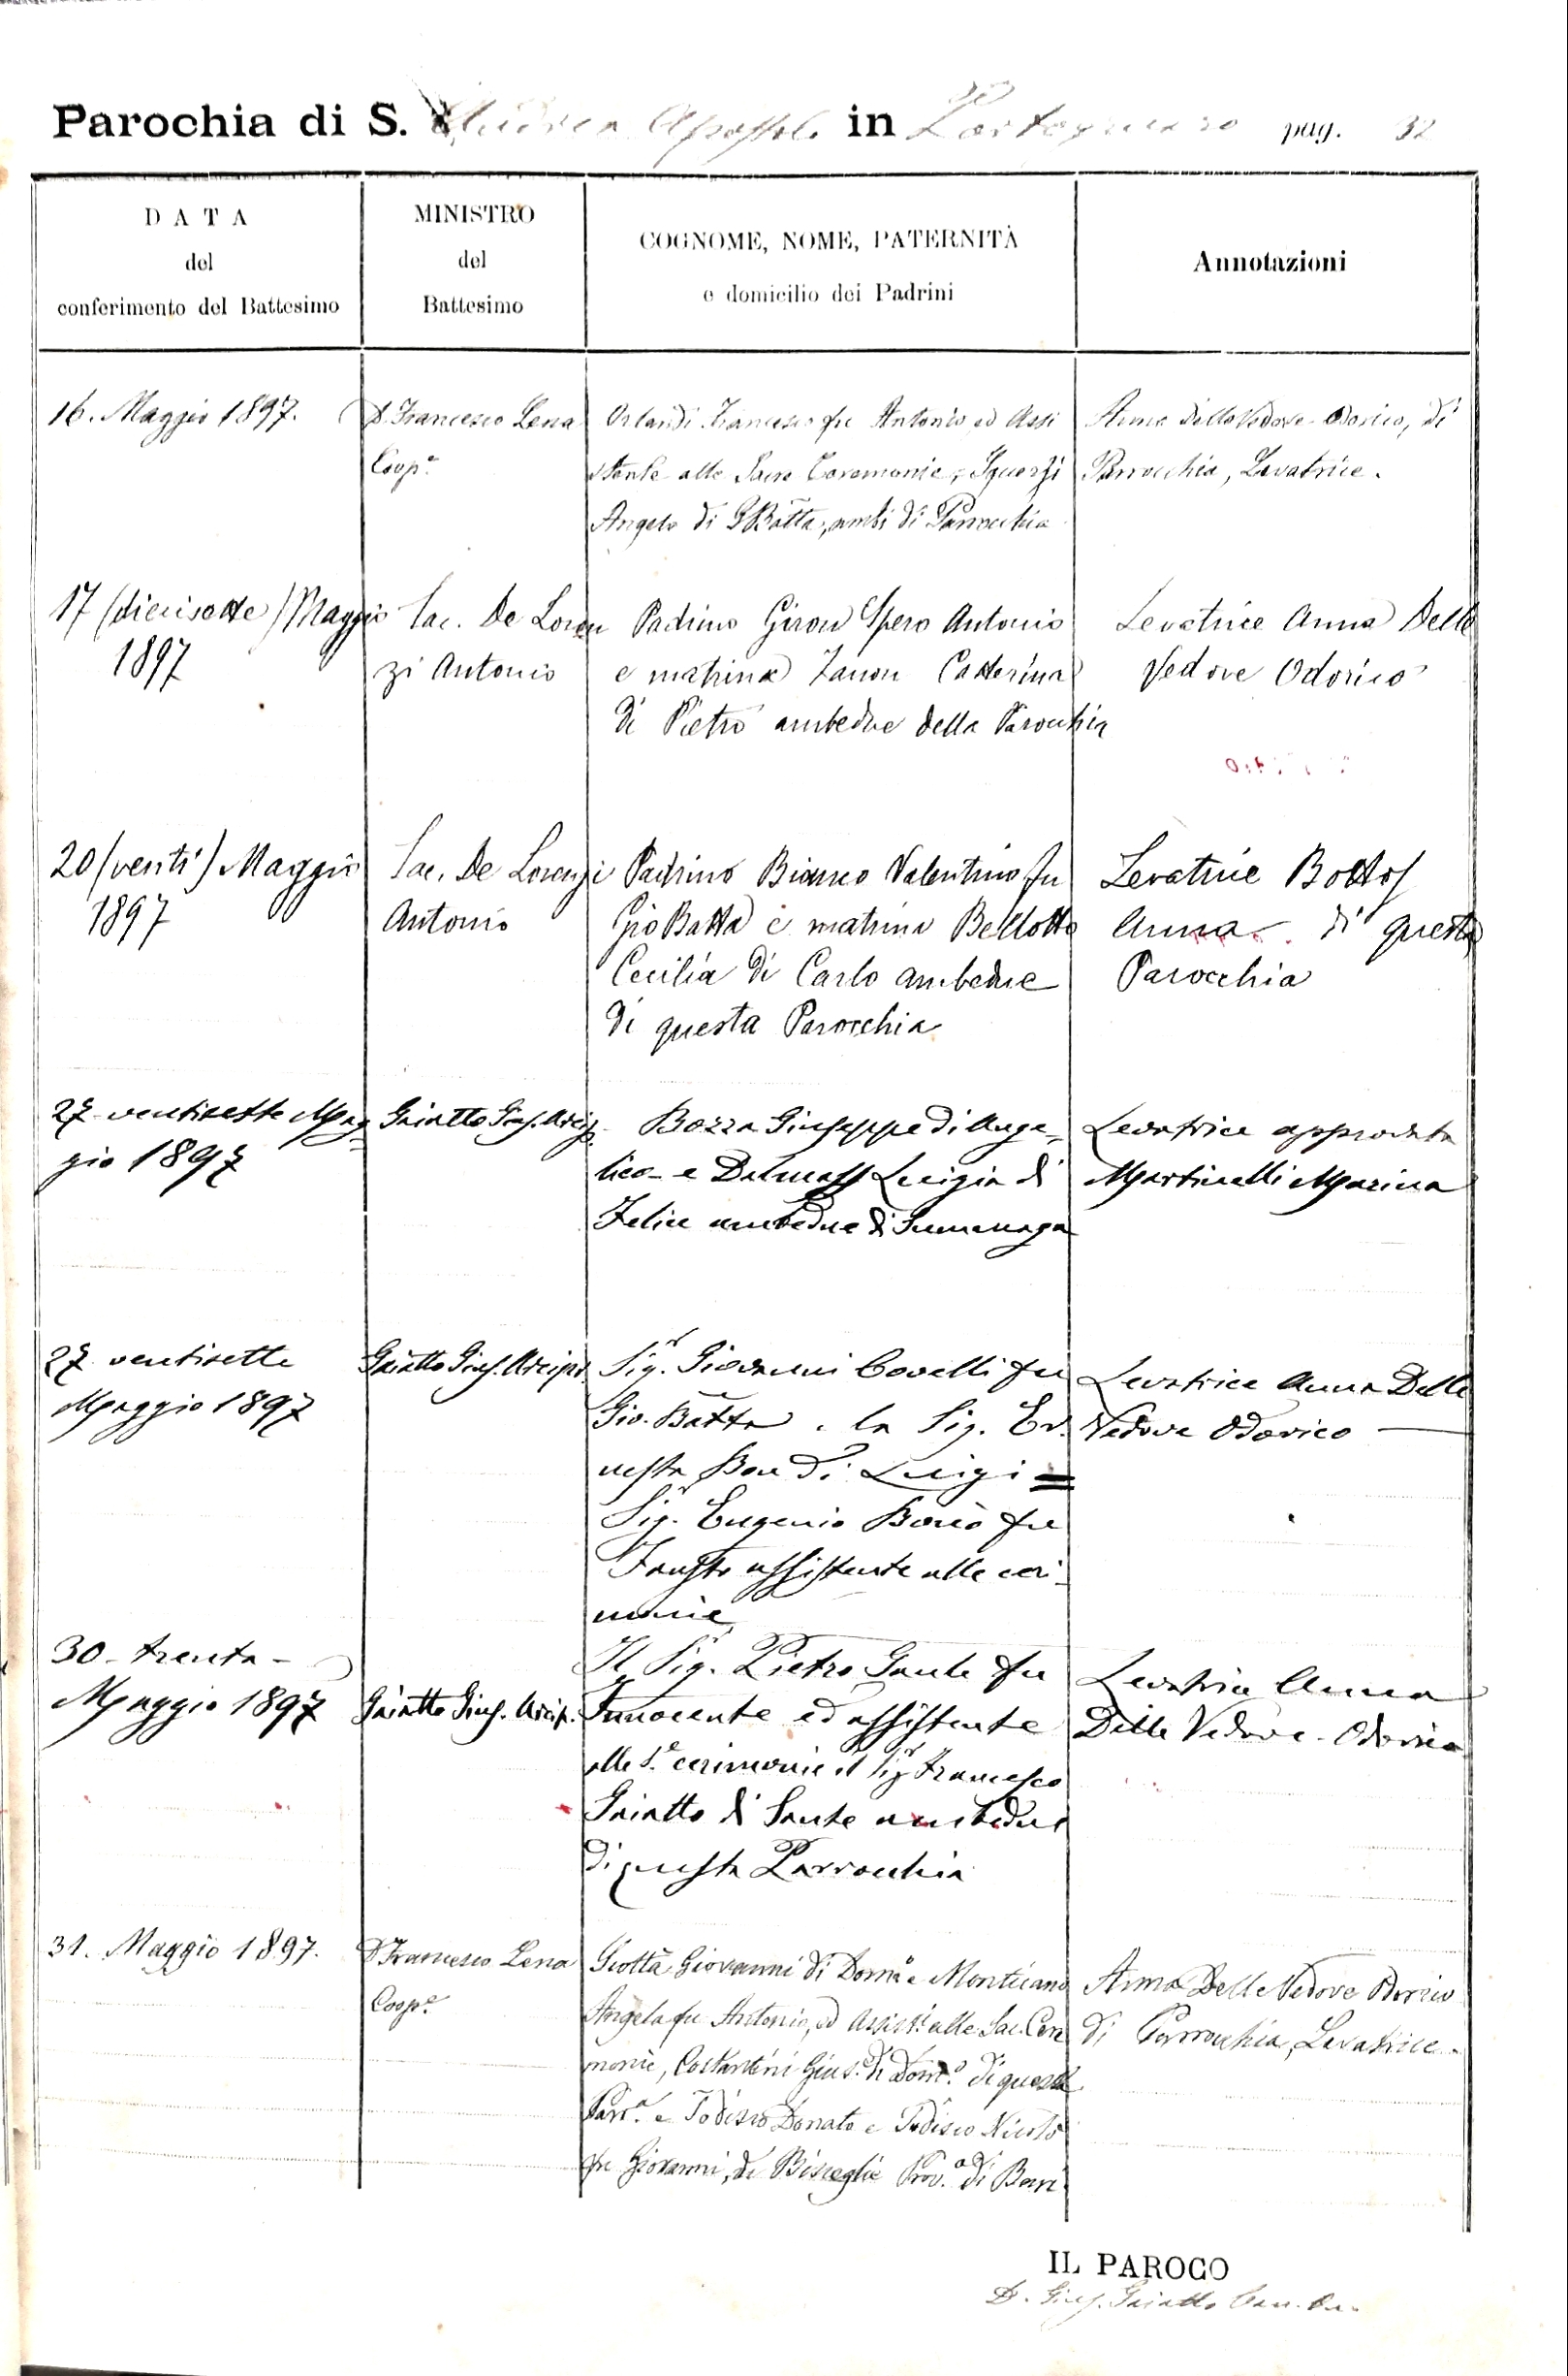 Parochia di S. Andrea Apostolo in Portogruaro pag. 32
DATA
del
conferimento del Battesimo
MINISTRO
del
Battesimo
COGNOME, NOME, PATERNITÀ
e domicilio dei Padrini
Annotazioni
16. Maggio 1897.
D. Francesco Lena
Coop.e
Orlandi Francesco fu Antonio ed Assi
stente alle Sacre Ceremonie, Squerzi
Angelo di GBatta, ambi di Parrocchia
Anna Delle Vedove Odorico, di
Parrocchia, Levatrice.
17 (diecisette) Maggio
1897
Sac. De Loren
zi Antonio
Padrino Giron Spero Antonio
e matrina Zanon Catterina
di Pietro ambedue della Parochia
Levatrice Anna Delle
Vedove Odorico
20 (venti) Maggio
1897
Sac. De Lorenzi
Antonio
Padrino Bianco Valentino fu
Gio Batta e matrina Bellotto
Cecilia di Carlo ambedue
di questa Parocchia
Levatrice Bottos
Anna di questa
Parocchia
27 ventisette Mag
gio 1897
Gaiatto Gius. Arcip.
Bozza Giuseppe di Ange-
lico e Dalmass Luigia di
Felice ambedue di Summaga
Levatrice approvata
Martinelli Marina
27 ventisette
Maggio 1897
Gaiatto Gius. Arcipr
Sigr. Giovanni Covelli fu
Gio. Batta . la Sig. Er
nesta Bon di Luigi =
Sigr. Eugenio fu
Fausto assistente alle ceri-
monie
Levatrice Anna Delle
Vedove Odorico
30 - trenta -
Maggio 1897
Gaiatto Gius. Arcip.
Il Sigr. Pietro Sante fu
Innocente ed assistente
alle S.e cerimonie il Sigr Francesco
Gaiatto di Sante ambedue
di questa Parrocchia
Levatrice Anna
Delle Vedove - Odorico
31. Maggio 1897.
D Francesco Lena
Coop.e
Giotta Giovanni di Dom.o e Monticano
Angela fu Antonio, ed Assist.i alle Sac. Cere
monie, Costantini Gius.e di Dom.o di questa
Parr.a e Todisco Donato e Todisco Nicolò
fu Giovanni, di Bisceglie Prov.a di Bari
Anna Delle Vedove Odorico
di Parrocchia, Levatrice.
IL PAROCO
D. Gius. Gaiatto